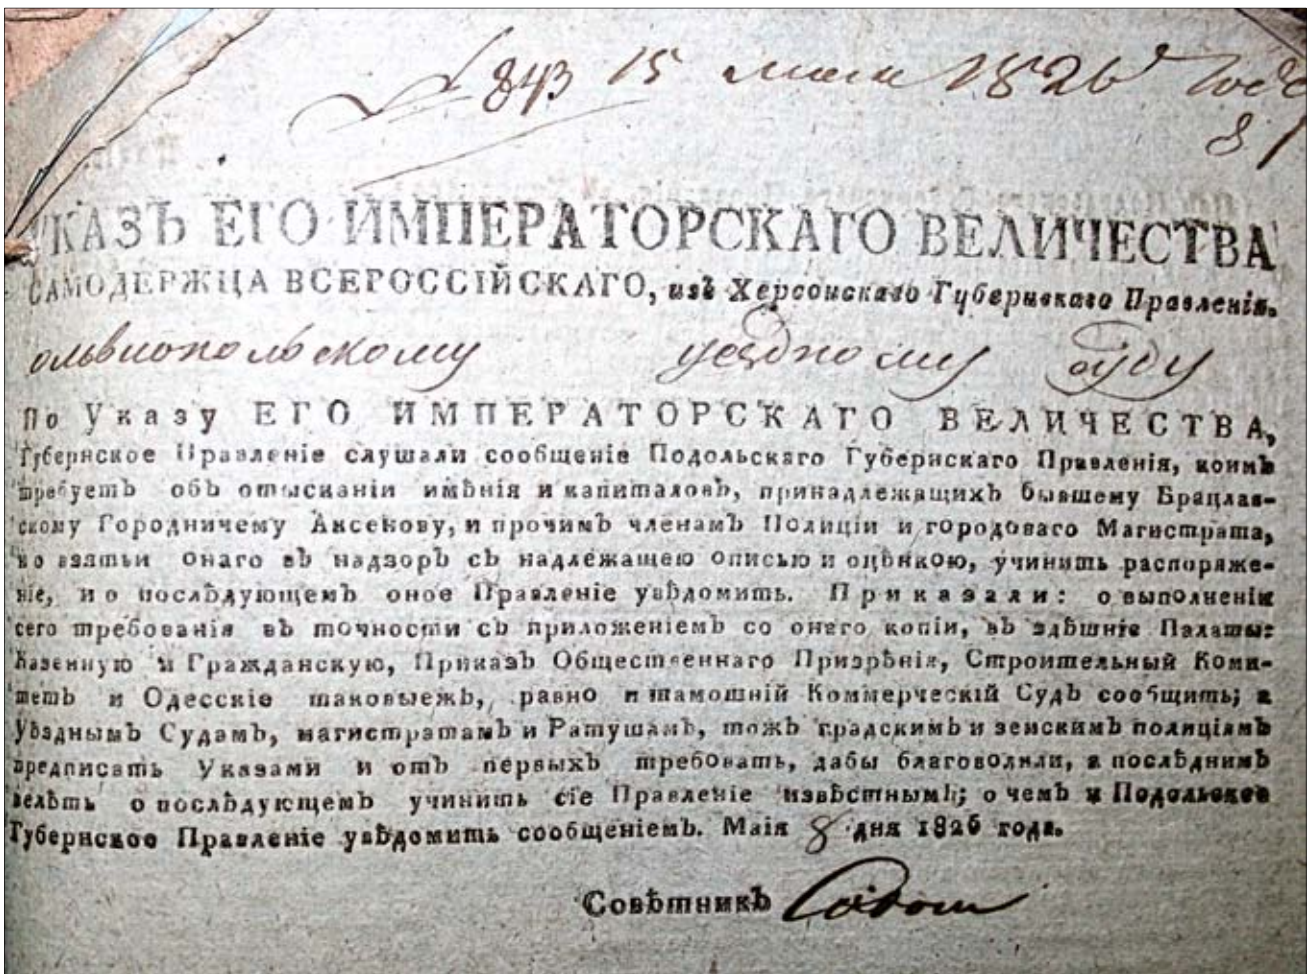 843 15 мая 1826 года
81
УКАЗЪ ЕГО ИМПЕРАТОРСКАГО ВЕЛИЧЕСТВА
САМОДЕРЖЦА ВСЕРОССІЙСКАГО, изъ Херсонскаго Губернскаго Правленія.
ольвиопольскому уездному суду
По Указу ЕГО ИМПЕРАТОРСКАГО ВЕЛИЧЕСТВА,
Губернское Правленіе слушали сообщеніе Подольскаго Губернскаго Правленія, коимъ
требуетъ объ отысканіи имѣнія и капиталовъ, принадлежащихъ бывшему Брацлав-
скому Городничему Аксекову, и прочимъ членамъ Полиціи и городоваго Магистрата,
во взятьи онаго въ надзоръ съ надлежащею описью и оцѣнкою, учинить распоряже-
ніе, и о послѣдующемъ оное Правленіе увѣдомить. Приказали: о выполненіи
сего требованія въ точности съ приложеніемъ со онаго копіи, въ здѣшніе Палаты:
Казенную и Гражданскую, Приказъ Общественнаго Призрѣнія, Строительный Коми-
тетъ и Одесскіе таковыежъ, равно и тамошній Коммерческій Судъ сообщить; а
Уѣзднымъ Судамъ, магистратамъ и Ратушамъ, тожъ градскимъ и земскимъ полиціямъ
предписать Указами и отъ первыхъ требовать, дабы благоволили, а послѣднимъ
велѣть о послѣдующемъ учинить сіе Правленіе извѣстнымъ; о чемъ и Подольское
Губернское Правленіе увѣдомить сообщеніемъ. Маія 8 дня 1826 года.
Совѣтникъ